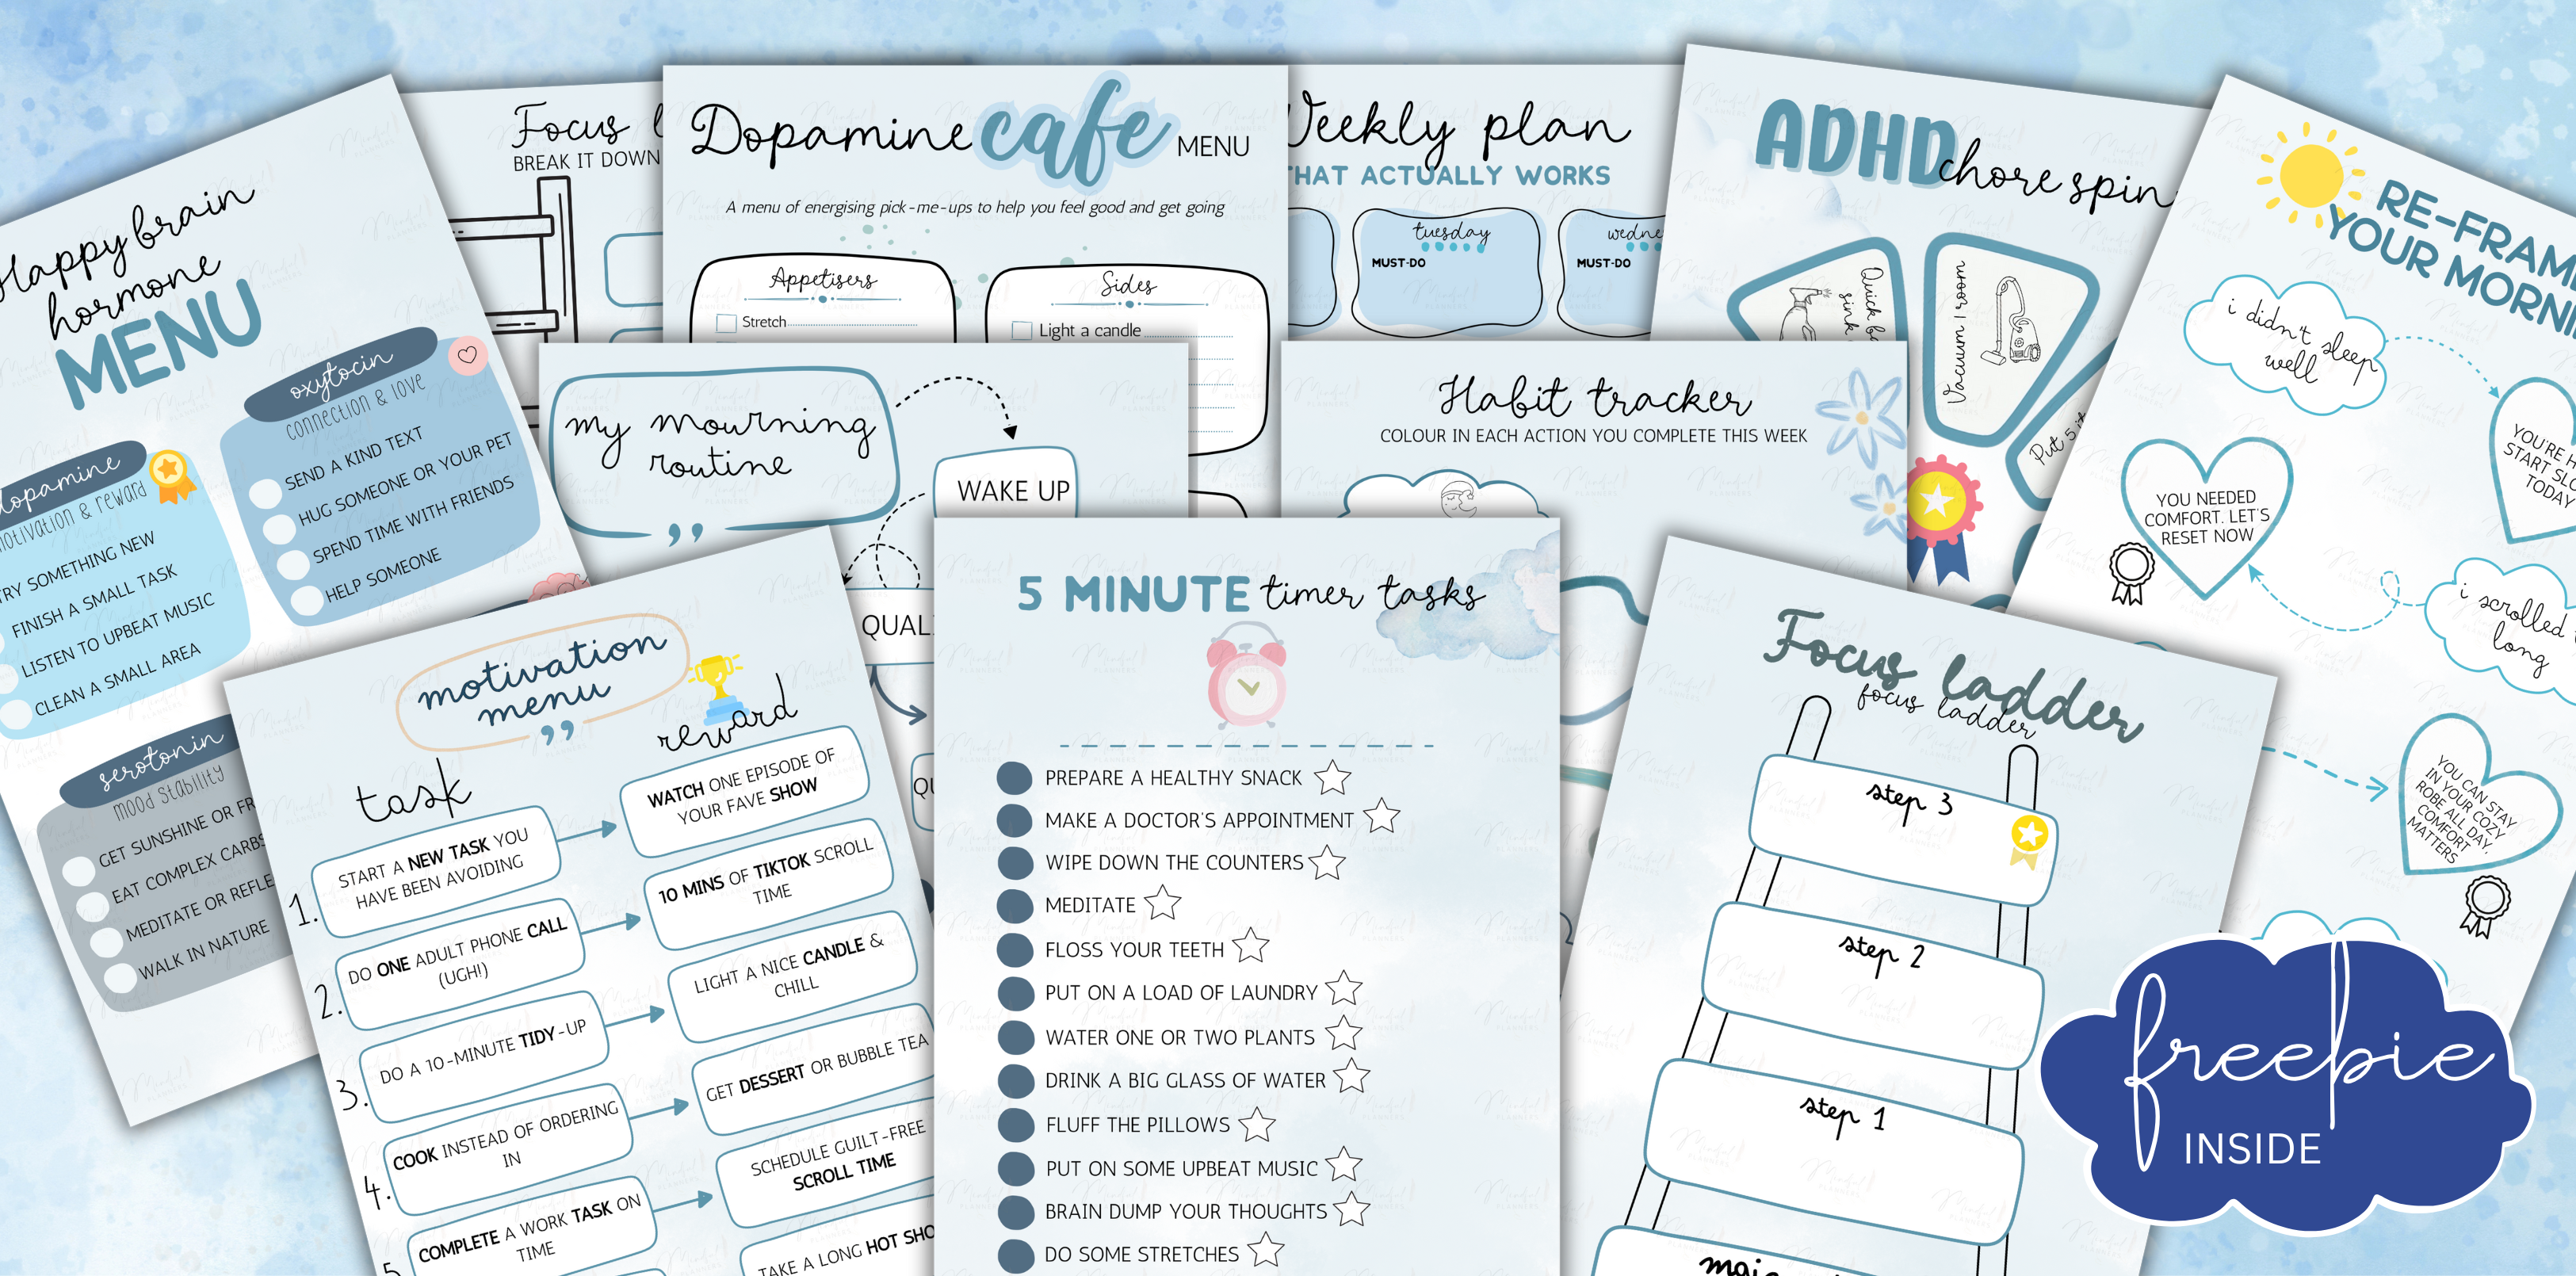 Happy brain
hormone
MENU
oxytocin
connection & love
SEND A KIND TEXT
HUG SOMEONE OR YOUR PET
SPEND TIME WITH FRIENDS
HELP SOMEONE
dopamine
motivation & reward
TRY SOMETHING NEW
FINISH A SMALL TASK
LISTEN TO UPBEAT MUSIC
CLEAN A SMALL AREA
serotonin
mood stability
GET SUNSHINE OR
EAT COMPLEX CARBS
MEDITATE OR
WALK IN NATURE
Focus
BREAK IT DOWN
Dopamine cafe MENU
A menu of energising pick-me-ups to help you feel good and get going
Appetisers
Stretch
Sides
Light a candle
Weekly plan
THAT ACTUALLY WORKS
tuesday
MUST-DO
MUST-DO
ADHD chore spin
Quick
sink
Vacuum 1 room
Put 5
RE-FRAME
YOUR
i didn't sleep
well
START
TODAY
YOU NEEDED
COMFORT. LET'S
RESET NOW
i scrolled
long
YOU CAN STAY
IN YOUR COZY
ROBE ALL DAY,
COMFORT
MATTERS
my mourning
routine
WAKE UP
Habit tracker
COLOUR IN EACH ACTION YOU COMPLETE THIS WEEK
motivation
menu
task
reward
1. START A NEW TASK YOU
HAVE BEEN AVOIDING
WATCH ONE EPISODE OF
YOUR FAVE SHOW
2. DO ONE ADULT PHONE CALL
(UGH!)
10 MINS OF TIKTOK SCROLL
TIME
3. DO A 10-MINUTE TIDY-UP
LIGHT A NICE CANDLE &
CHILL
4. COOK INSTEAD OF ORDERING
IN
GET DESSERT OR BUBBLE TEA
5. COMPLETE A WORK TASK ON
TIME
SCHEDULE GUILT-FREE
SCROLL TIME
TAKE A LONG HOT
5 MINUTE timer tasks
PREPARE A HEALTHY SNACK
MAKE A DOCTOR'S APPOINTMENT
WIPE DOWN THE COUNTERS
MEDITATE
FLOSS YOUR TEETH
PUT ON A LOAD OF LAUNDRY
WATER ONE OR TWO PLANTS
DRINK A BIG GLASS OF WATER
FLUFF THE PILLOWS
PUT ON SOME UPBEAT MUSIC
BRAIN DUMP YOUR THOUGHTS
DO SOME STRETCHES
Focus ladder
focus ladder
step 3
step 2
step 1
freebie
INSIDE